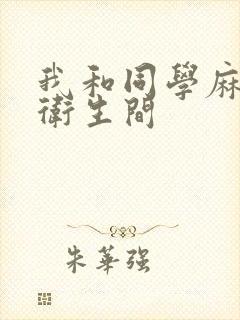 我和同學麻
衛生間
朱華強